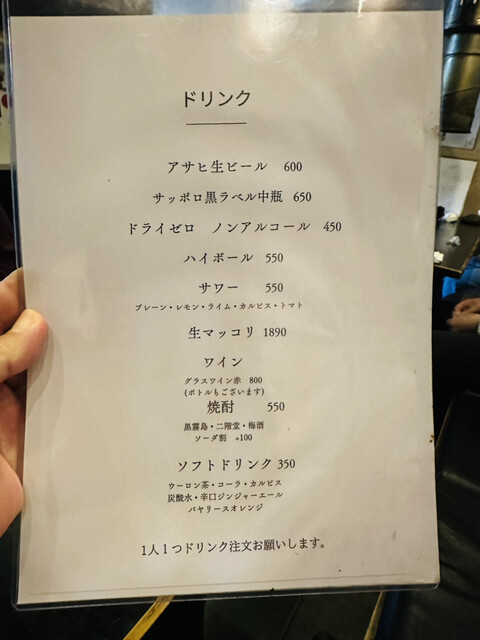 ドリンク
アサヒ生ビール 600
サッポロ黒ラベル中瓶 650
ドライゼロ ノンアルコール 450
ハイボール 550
サワー 550
プレーン・レモン・ライム・カルピス・トマト
生マッコリ 1890
ワイン
グラスワイン赤 800
(ボトルもございます)
焼酎 550
黒霧島・二階堂・梅酒
ソーダ割 +100
ソフトドリンク 350
ウーロン茶・コーラ・カルピス
炭酸水・辛口ジンジャーエール
バヤリースオレンジ
1人1つドリンク注文お願いします。